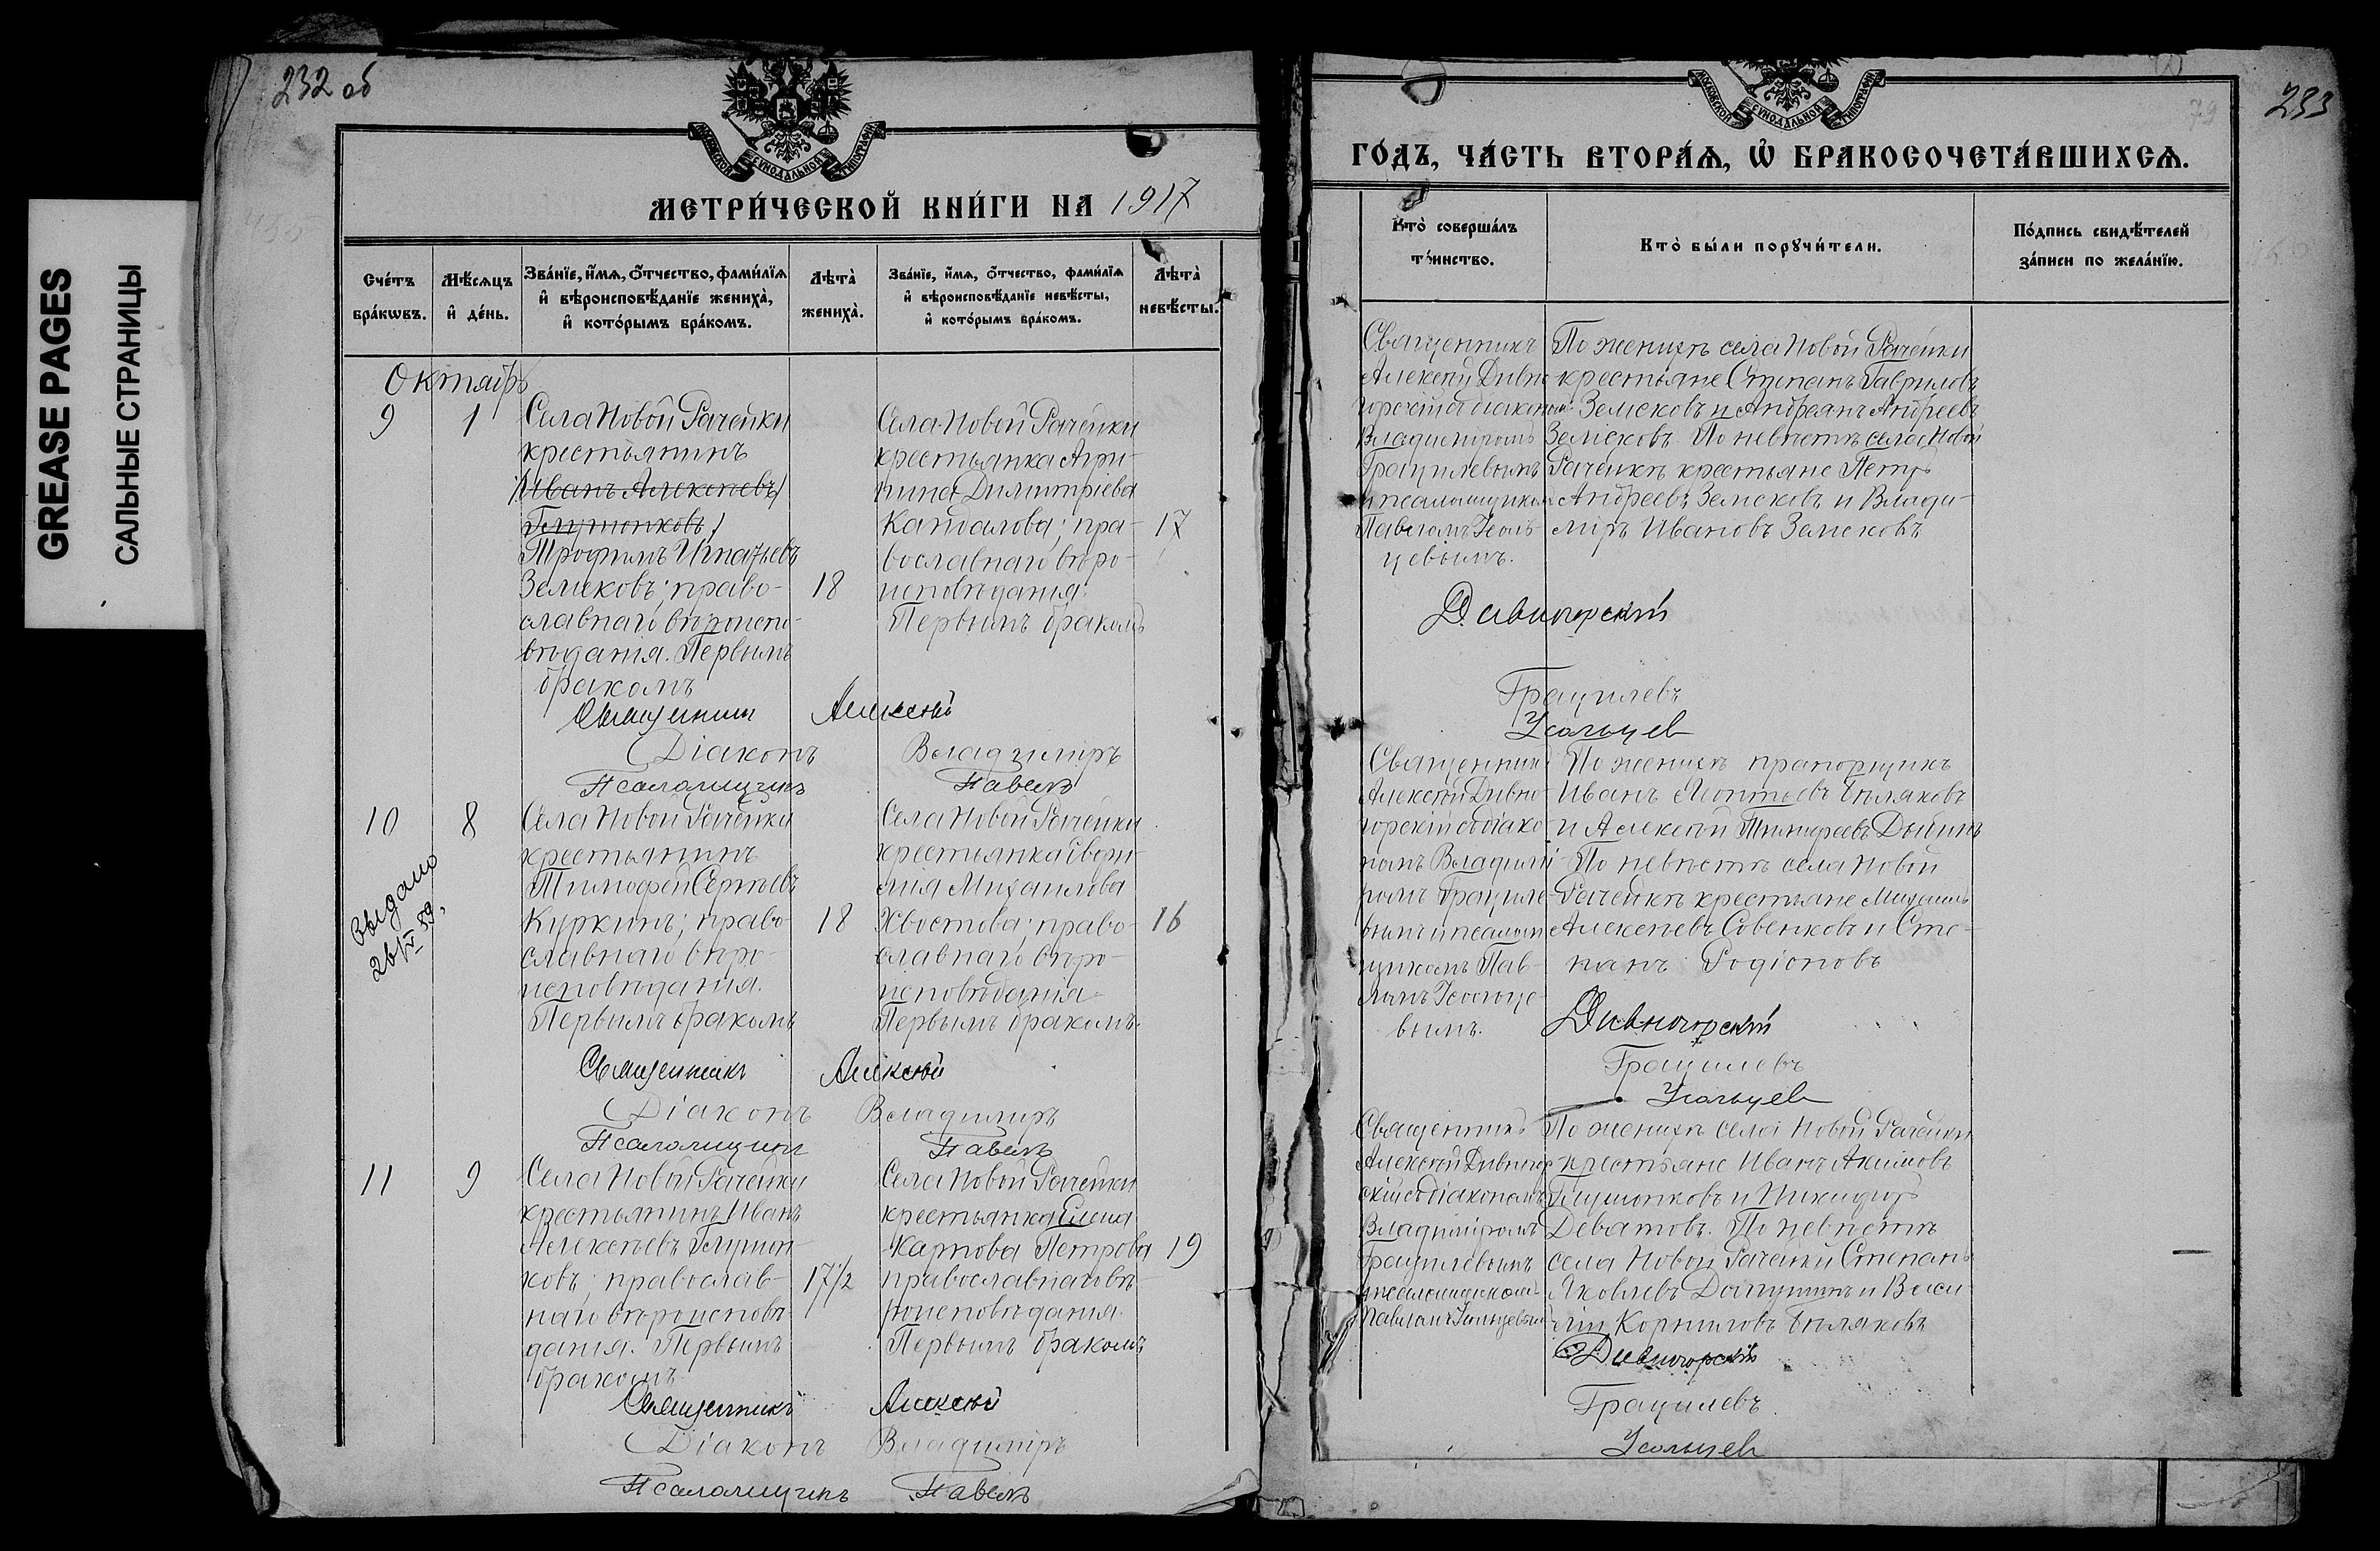 GREASE PAGES
САЛЬНЫЕ СТРАНИЦЫ
232 об
МОСКОВСКОЙ СУНОДАЛЬНОЙ ТИПОГРАФІИ
МЕТРИ́ЧЕСКОЙ КНИ́ГИ НА 1917
Сче́тъ бра́кѡвъ.
Мѣ́сѧцъ и҆ де́нь.
Зва́нїе, и҆́мѧ, ѻ҆́тчество, фами́лїѧ и҆ вѣроисповѣ́данїе жениха̀, и҆ кото́рымъ бра́комъ.
Лѣта̀ жениха̀.
Зва́нїе, и҆́мѧ, ѻ҆́тчество, фами́лїѧ и҆ вѣроисповѣ́данїе невѣ́сты, и҆ кото́рымъ бра́комъ.
Лѣта̀ невѣ́сты.
Октябрь
9
1
Села Новой Рачейки
крестьянинъ
(Иванъ Алексѣевъ)
Глушонковъ)
Трофимъ Игнатьевъ
Земсковъ; право-
славнаго вѣроиспо-
вѣданія. Первымъ
бракомъ
18
Села Новой Рачейки
крестьянка Агри-
пина Димитріева
Кандалова; пра-
вославнаго вѣро-
исповѣданія.
Первымъ бракомъ
17
Священник Алексѣй
Діаконъ Владимиръ
Псаломщикъ Павелъ
10
8
Выдано
26/V 59,
Села Новой Рачейки
крестьянинъ
Тимофей Сергѣевъ
Куркинъ; право-
славнаго вѣро-
исповѣданія.
Первымъ бракомъ
18
Села Новой Рачейки
крестьянка
Михаилова
Хвостова; право-
славнаго вѣро-
исповѣданія
Первымъ бракомъ.
16
Священникъ Алексѣй
Діаконъ Владимиръ
Псаломщикъ Павелъ
11
9
Села Новой Рачейки
крестьянинъ Иванъ
Алексѣевъ Глушон-
ковъ; православ-
наго вѣроисповѣ-
данія. Первымъ
бракомъ
17 1/2
Села Новой Рачейки
крестьянка Елена
Карпова Петрова
православнаго вѣ-
роисповѣданія.
Первымъ бракомъ
19
Священникъ Алексѣй
Діаконъ Владимиръ
Псаломщикъ Павелъ
233
79
МОСКОВСКОЙ СУНОДАЛЬНОЙ ТИПОГРАФІИ
ГО́ДЪ, ЧА́СТЬ ВТОРА́Ѧ, Ѽ БРАКОСОЧЕТА́ВШИХСѦ.
Кто̀ соверша́лъ та́инство.
Кто̀ бы́ли порꙋчи́тели.
По́дпись свидѣ́телей за́писи по жела́нїю.
Священникъ
Алексѣй Дивно-
горскій съ діакономъ
Владиміромъ
Грациле­вымъ
и псаломщикомъ
Павломъ Усоль-
цевымъ.
По женихѣ села Новой Рачейки
крестьяне Степанъ Гавриловъ
Земсковъ и Андреянъ Андреевъ
Земсковъ. По невѣстѣ села Новой
Рачейки крестьяне Петръ
Андреевъ Земсковъ и Влади-
миръ Ивановъ Земсковъ
Дивногорскій
Грацилевъ
Усольцев
Священникъ
Алексѣй Дивно-
горскій съ діако-
номъ Владимі-
ромъ Грациле-
вымъ и псалом-
щикомъ Пав-
ломъ Усольце-
вымъ.
По женихѣ прапорщикъ
Иванъ Леонтьевъ Бѣляковъ
и Алексѣй Тимофеевъ Дыбинъ
По невѣстѣ села Новой
Рачейкѣ крестьяне Михаилъ
Алексѣевъ Совенковъ и Сте-
панъ Родіоновъ
Дивногорскій
Грацилевъ
Усольцев
Священникъ
Алексѣй Дивногор-
скій съ діакономъ
Владиміромъ
Грацилевымъ
и псаломщикомъ
Павломъ Усольцевымъ
По женихѣ села Новой Рачейки
крестьяне Иванъ Акимовъ
Глушонковъ и Никифоръ
Деватовъ. По невѣстѣ
села Новой Рачейки Степанъ
Яковлевъ и Васи-
лій Корниловъ Бѣляковъ
Дивногорскій
Грацилевъ
Усольцев